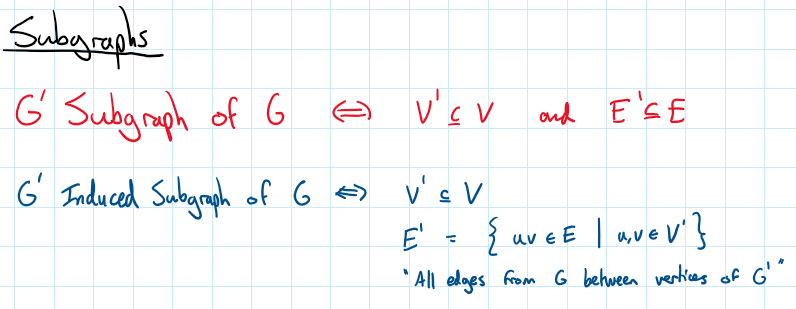 Subgraphs
G' Subgraph of G ⇔ V' ⊆ V and E' ⊆ E
G' Induced Subgraph of G ⇔ V' ⊆ V
E' = { uv ∈ E | u,v ∈ V' }
"All edges from G between vertices of G'"